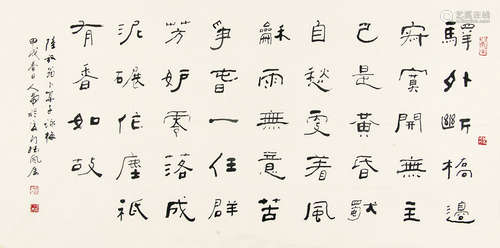 驛外断橋邊
寂寞開無主
已是黃昏獸
自愁更著風
龢雨無意苦
爭春一任群
芳妒零落成
泥碾作塵祇
有香如故
陸放翁卜算子詠梅
甲戌春日